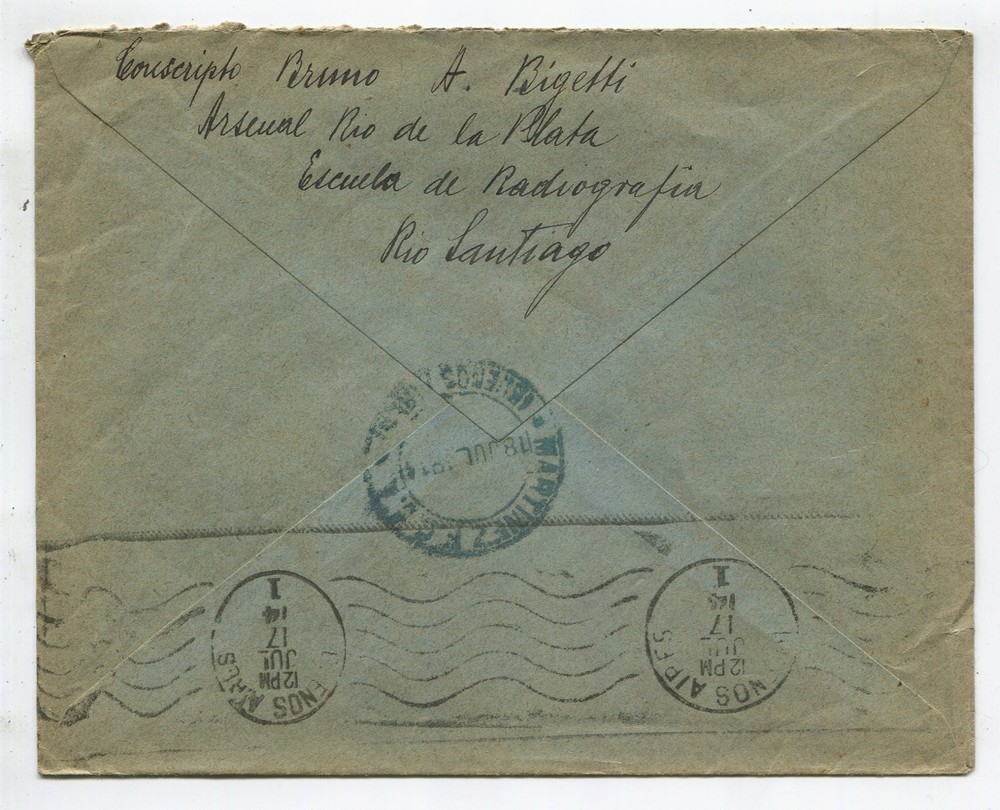 Conscripto Bruno A. Bigetti
Arsenal Rio de la Plata
Escuela de Radiografía
Rio Santiago
MARTINEZ
18 JUL
BUENOS AIRES
12 PM
JUL
17
14
1
ENOS AIRES
12 PM
JUL
17
1